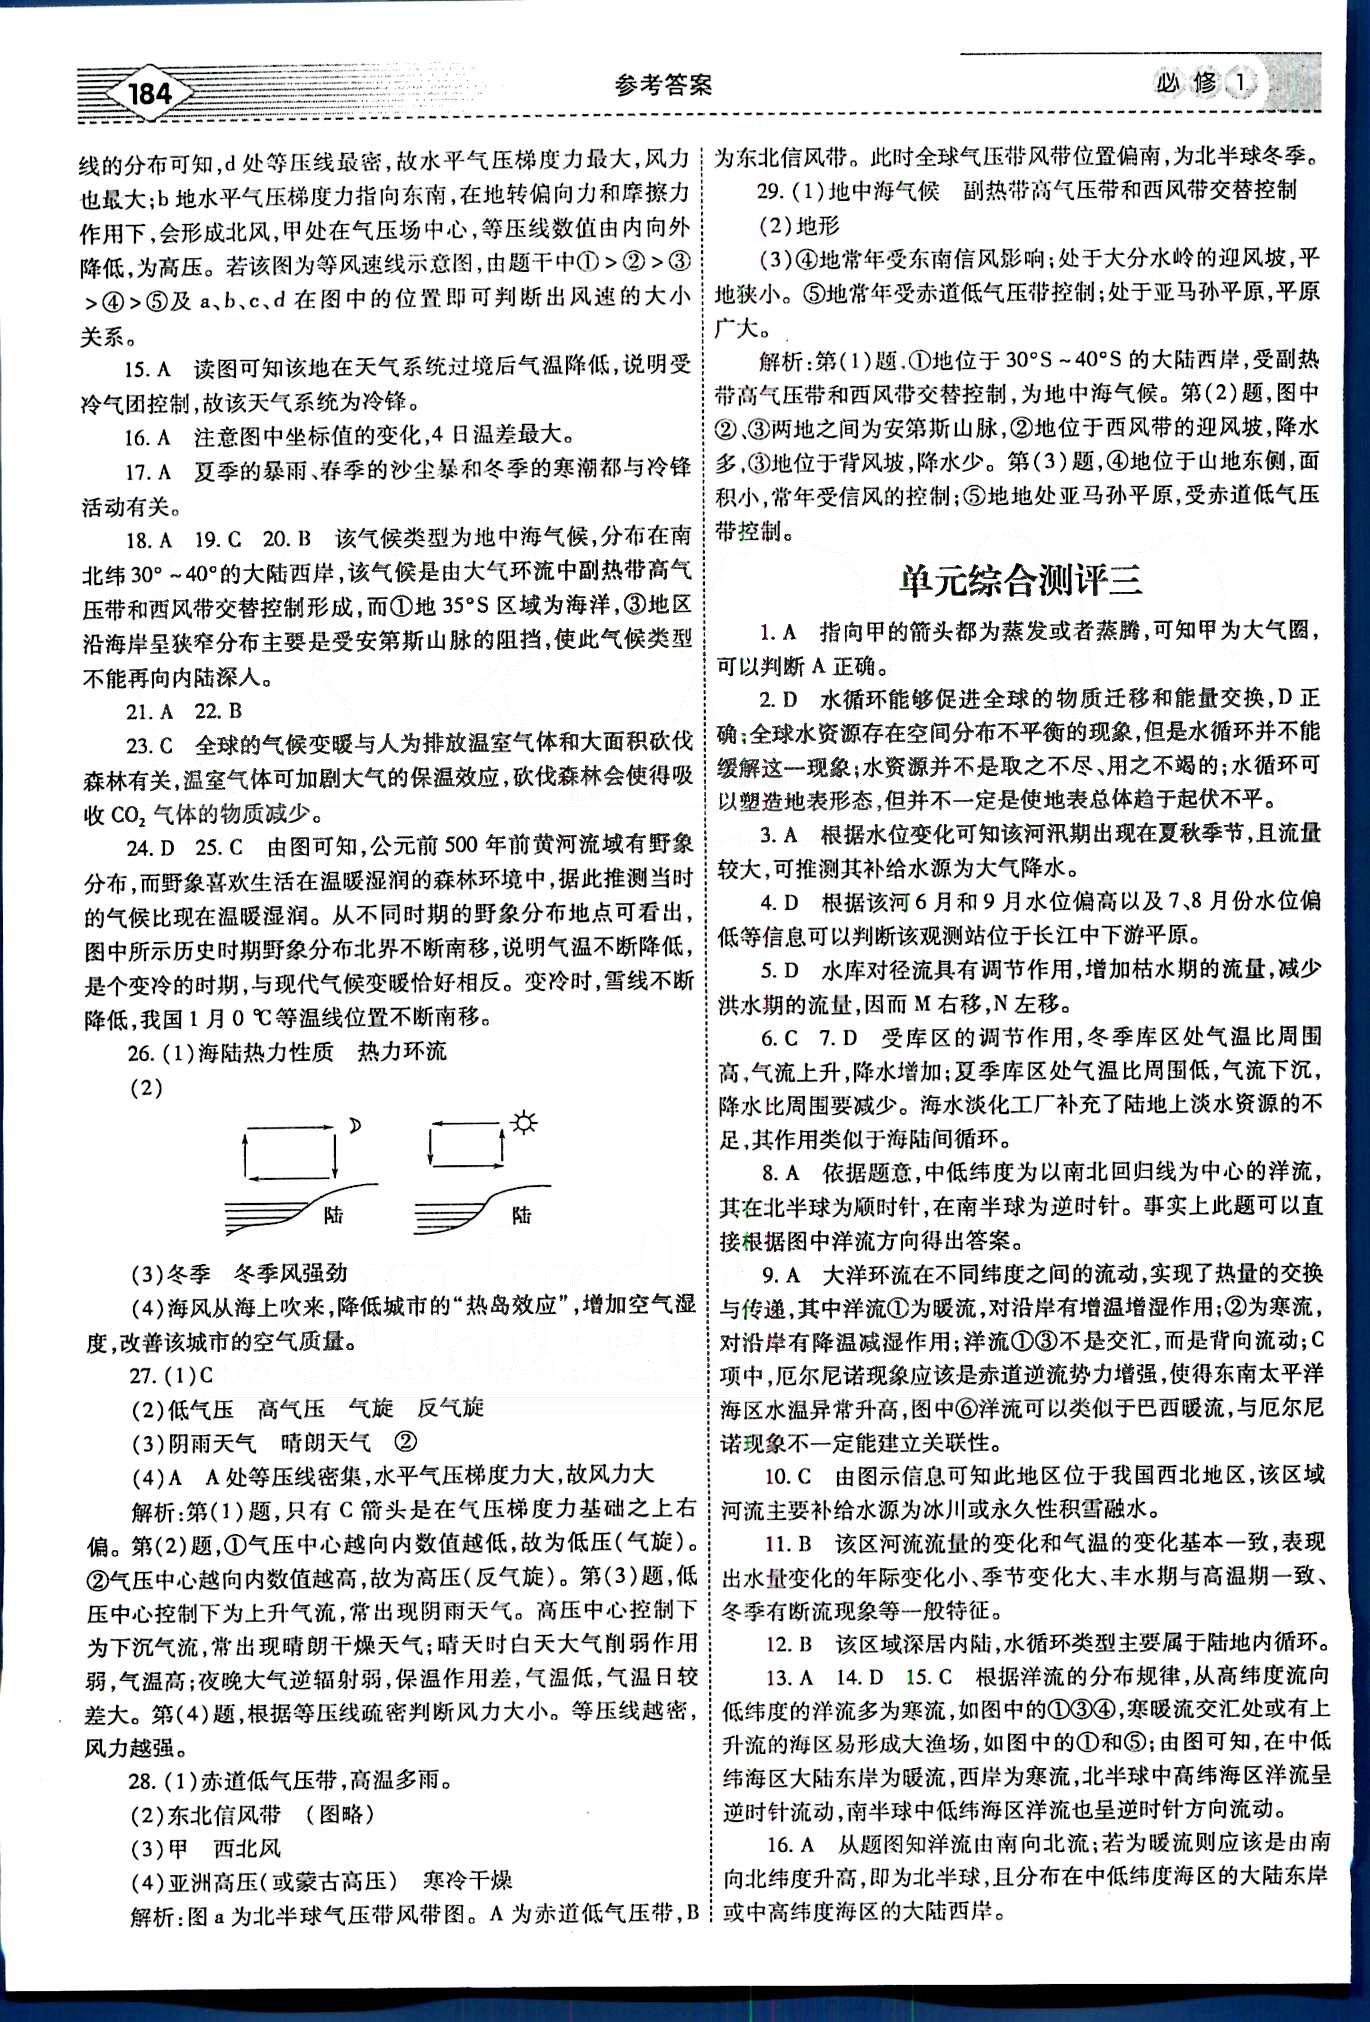 184
参考答案
必修1
线的分布可知,d 处等压线最密,故水平气压梯度力最大,风力
也最大;b 地水平气压梯度力指向东南,在地转偏向力和摩擦力
作用下,会形成北风,甲处在气压场中心,等压线数值由内向外
降低,为高压。若该图为等风速线示意图,由题干中①>②>③
>④>⑤及 a、b、c、d 在图中的位置即可判断出风速的大小
关系。
15. A 读图可知该地在天气系统过境后气温降低,说明受
冷气团控制,故该天气系统为冷锋。
16. A 注意图中坐标值的变化,4 日温差最大。
17. A 夏季的暴雨、春季的沙尘暴和冬季的寒潮都与冷锋
活动有关。
18. A 19. C 20. B 该气候类型为地中海气候,分布在南
北纬30°~40°的大陆西岸,该气候是由大气环流中副热带高气
压带和西风带交替控制形成,而①地 35°S 区域为海洋,③地区
沿海岸呈狭窄分布主要是受安第斯山脉的阻挡,使此气候类型
不能再向内陆深入。
21. A 22. B
23. C 全球的气候变暖与人为排放温室气体和大面积砍伐
森林有关,温室气体可加剧大气的保温效应,砍伐森林会使得吸
收 CO₂ 气体的物质减少。
24. D 25. C 由图可知,公元前 500 年前黄河流域有野象
分布,而野象喜欢生活在温暖湿润的森林环境中,据此推测当时
的气候比现在温暖湿润。从不同时期的野象分布地点可看出,
图中所示历史时期野象分布北界不断南移,说明气温不断降低,
是个变冷的时期,与现代气候变暖恰好相反。变冷时,雪线不断
降低,我国 1 月 0 ℃等温线位置不断南移。
26. (1)海陆热力性质 热力环流
(2)
陆 陆
(3)冬季 冬季风强劲
(4)海风从海上吹来,降低城市的“热岛效应”,增加空气湿
度,改善该城市的空气质量。
27. (1)C
(2)低气压 高气压 气旋 反气旋
(3)阴雨天气 晴朗天气 ②
(4)A A 处等压线密集,水平气压梯度力大,故风力大
解析:第(1)题,只有 C 箭头是在气压梯度力基础之上右
偏。第(2)题,①气压中心越向内数值越低,故为低压(气旋)。
②气压中心越向内数值越高,故为高压(反气旋)。第(3)题,低
压中心控制下为上升气流,常出现阴雨天气。高压中心控制下
为下沉气流,常出现晴朗干燥天气;晴天时白天大气削弱作用
弱,气温高;夜晚大气逆辐射弱,保温作用差,气温低,气温日较
差大。第(4)题,根据等压线疏密判断风力大小。等压线越密,
风力越强。
28. (1)赤道低气压带,高温多雨。
(2)东北信风带 (图略)
(3)甲 西北风
(4)亚洲高压(或蒙古高压) 寒冷干燥
解析:图 a 为北半球气压带风带图。A 为赤道低气压带,B
为东北信风带。此时全球气压带风带位置偏南,为北半球冬季。
29. (1)地中海气候 副热带高气压带和西风带交替控制
(2)地形
(3)④地常年受东南信风影响;处于大分水岭的迎风坡,平
地狭小。⑤地常年受赤道低气压带控制;处于亚马孙平原,平原
广大。
解析:第(1)题,①地位于 30°S~40°S 的大陆西岸,受副热
带高气压带和西风带交替控制,为地中海气候。第(2)题,图中
②、③两地之间为安第斯山脉,②地位于西风带的迎风坡,降水
多,③地位于背风坡,降水少。第(3)题,④地位于山地东侧,面
积小,常年受信风的控制;⑤地地处亚马孙平原,受赤道低气压
带控制。
单元综合测评三
1. A 指向甲的箭头都为蒸发或者蒸腾,可知甲为大气圈,
可以判断 A 正确。
2. D 水循环能够促进全球的物质迁移和能量交换,D 正
确;全球水资源存在空间分布不平衡的现象,但是水循环并不能
缓解这一现象;水资源并不是取之不尽、用之不竭的;水循环可
以塑造地表形态,但并不一定是使地表总体趋于起伏不平。
3. A 根据水位变化可知该河汛期出现在夏秋季节,且流量
较大,可推测其补给水源为大气降水。
4. D 根据该河 6 月和 9 月水位偏高以及 7、8 月份水位偏
低等信息可以判断该观测站位于长江中下游平原。
5. D 水库对径流具有调节作用,增加枯水期的流量,减少
洪水期的流量,因而 M 右移,N 左移。
6. C 7. D 受库区的调节作用,冬季库区处气温比周围
高,气流上升,降水增加;夏季库区处气温比周围低,气流下沉,
降水比周围要减少。海水淡化工厂补充了陆地上淡水资源的不
足,其作用类似于海陆间循环。
8. A 依据题意,中低纬度为以南北回归线为中心的洋流,
其在北半球为顺时针,在南半球为逆时针。事实上此题可以直
接根据图中洋流方向得出答案。
9. A 大洋环流在不同纬度之间的流动,实现了热量的交换
与传递,其中洋流①为暖流,对沿岸有增温增湿作用;②为寒流,
对沿岸有降温减湿作用;洋流①③不是交汇,而是背向流动;C
项中,厄尔尼诺现象应该是赤道逆流势力增强,使得东南太平洋
海区水温异常升高,图中⑥洋流可以类似于巴西暖流,与厄尔尼
诺现象不一定能建立关联性。
10. C 由图示信息可知此地区位于我国西北地区,该区域
河流主要补给水源为冰川或永久性积雪融水。
11. B 该区河流流量的变化和气温的变化基本一致,表现
出水量变化的年际变化小、季节变化大、丰水期与高温期一致、
冬季有断流现象等一般特征。
12. B 该区域深居内陆,水循环类型主要属于陆地内循环。
13. A 14. D 15. C 根据洋流的分布规律,从高纬度流向
低纬度的洋流多为寒流,如图中的①③④,寒暖流交汇处或有上
升流的海区易形成大渔场,如图中的①和⑤;由图可知,在中低
纬海区大陆东岸为暖流,西岸为寒流,北半球中高纬海区洋流呈
逆时针流动,南半球中低纬海区洋流也呈逆时针方向流动。
16. A 从题图知洋流由南向北流;若为暖流则应该是由南
向北纬度升高,即为北半球,且分布在中低纬度海区的大陆东岸
或中高纬度海区的大陆西岸。